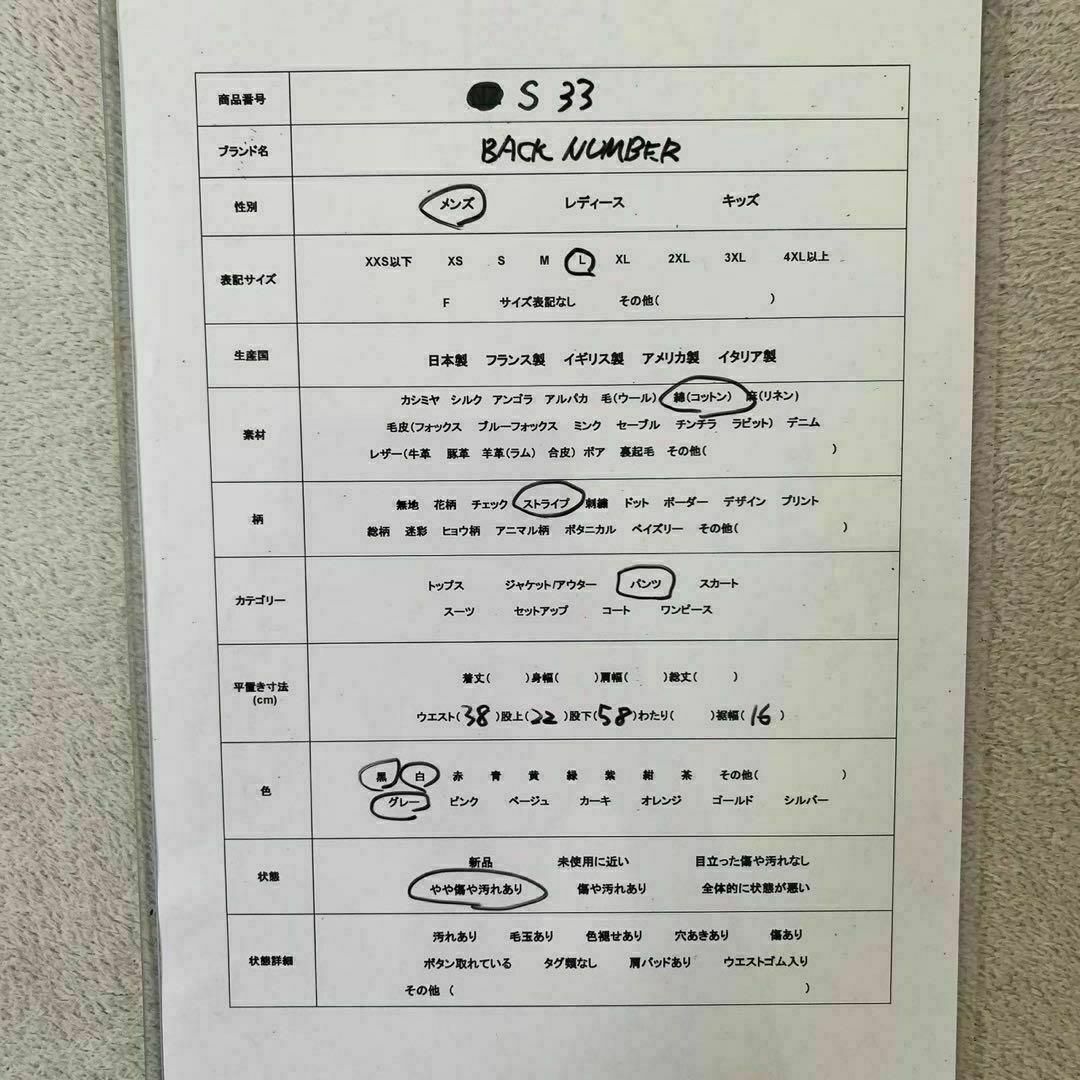 商品番号 S 33
ブランド名 BACK NUMBER
性別 メンズ レディース キッズ
XXS以下 XS S M L XL 2XL 3XL 4XL以上
表記サイズ
F サイズ表記なし その他( )
生産国 日本製 フランス製 イギリス製 アメリカ製 イタリア製
カシミヤ シルク アンゴラ アルパカ 毛(ウール) 綿(コットン) 麻(リネン)
素材 毛皮(フォックス ブルーフォックス ミンク セーブル チンチラ ラビット) デニム
レザー(牛革 豚革 羊革(ラム) 合皮) ボア 裏起毛 その他( )
無地 花柄 チェック ストライプ 刺繍 ドット ボーダー デザイン プリント
柄
総柄 迷彩 ヒョウ柄 アニマル柄 ボタニカル ペイズリー その他( )
トップス ジャケット/アウター パンツ スカート
カテゴリー
スーツ セットアップ コート ワンピース
着丈( )身幅( )肩幅( )総丈( )
平置き寸法
(cm)
ウエスト(38)股上(22)股下(58)わたり( )裾幅(16)
黒 白 赤 青 黄 緑 紫 紺 茶 その他( )
色
グレー ピンク ベージュ カーキ オレンジ ゴールド シルバー
新品 未使用に近い 目立った傷や汚れなし
状態
やや傷や汚れあり 傷や汚れあり 全体的に状態が悪い
汚れあり 毛玉あり 色褪せあり 穴あきあり 傷あり
状態詳細 ボタン取れている タグ類なし 肩パッドあり ウエストゴム入り
その他 ( )